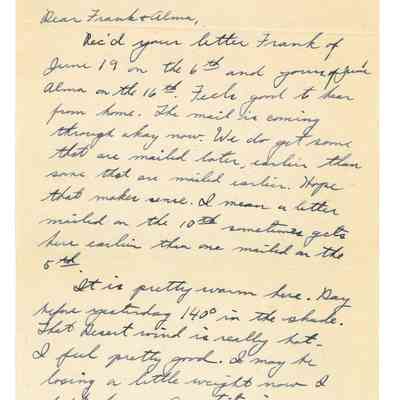 Dear Frank & Alma,
Rec'd your letter Frank of
June 19 on the 6th and yours of June
Alma on the 16th. Feels good to hear
from home. The mail is coming
through okay now. We do get some
that are mailed later, earlier than
some that are mailed earlier. Hope
that makes sense. I mean a letter
mailed on the 10th sometimes gets
here earlier than one mailed on the
5th
It is pretty warm here. Day
before yesterday 140° in the shade.
That Desert wind is really hot.
I feel pretty good. I may be
losing a little weight now I